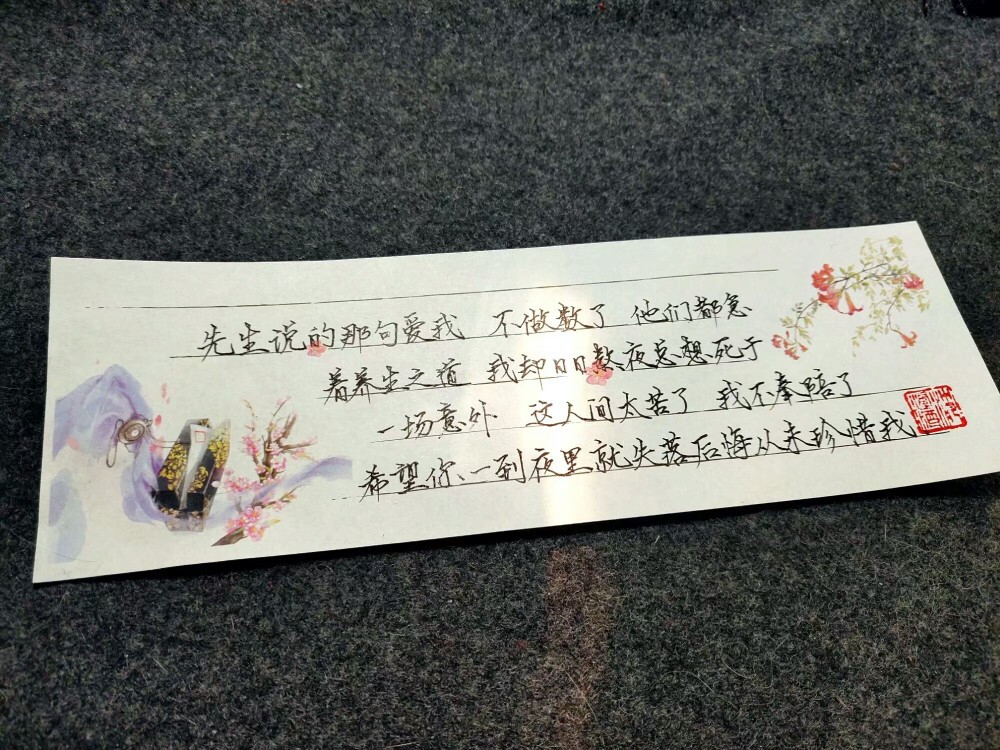 先生说的那句爱我 不做数了 他们都急
着养生之道 我却日日熬夜总想死于
一场意外 这人间太苦了 我不奉陪了
希望你、一到夜里就失落后悔从未珍惜我